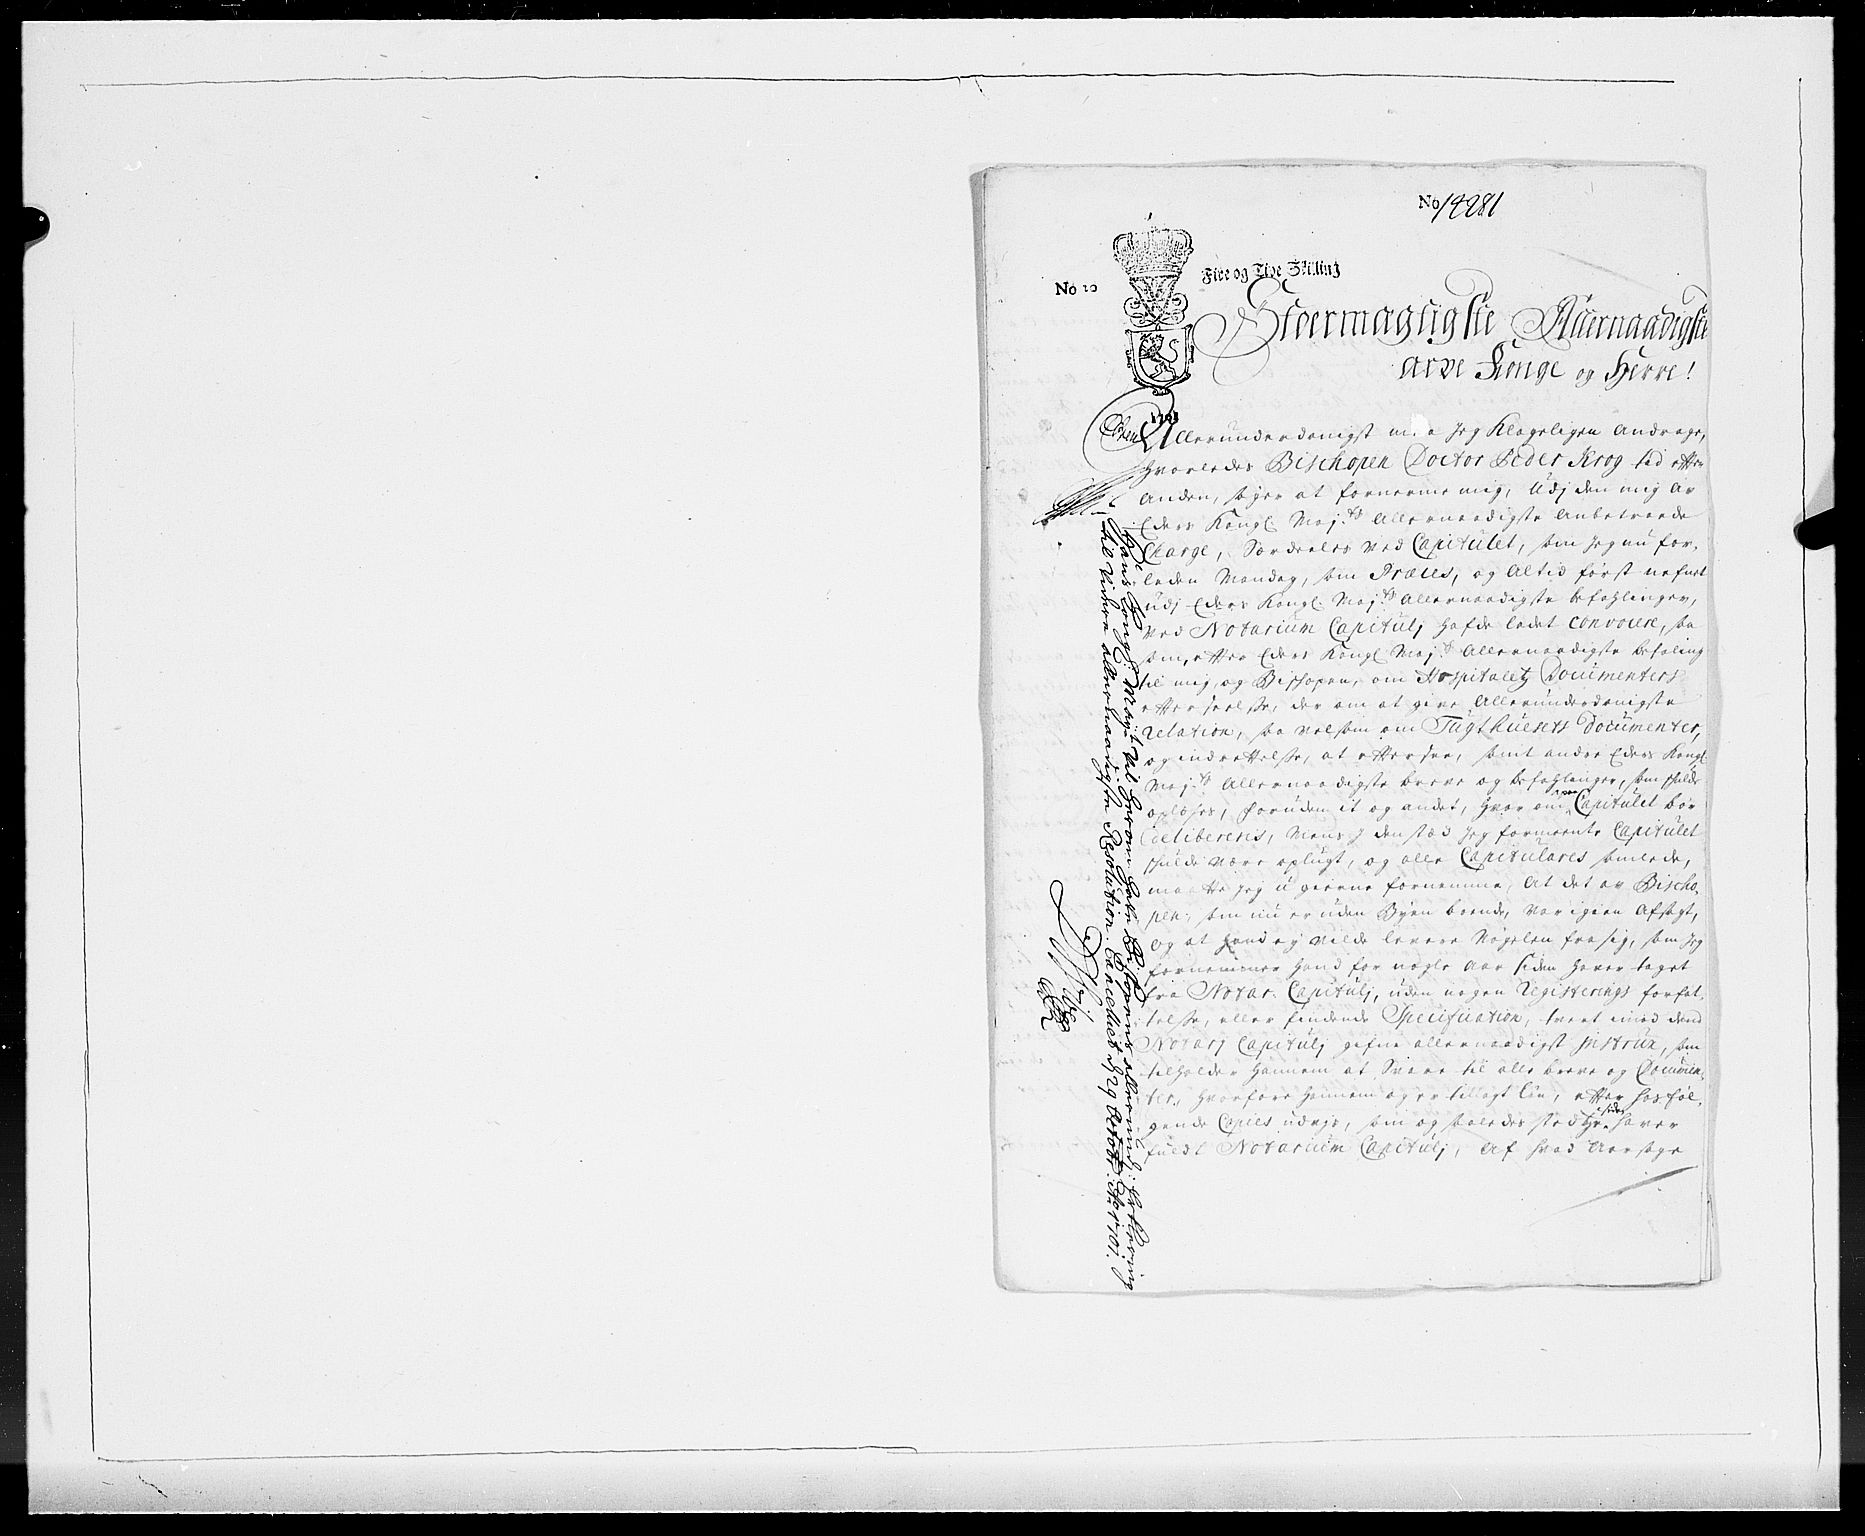 No 14281
No 20
Fire og Tive Skilling
Stoermægtigste Allernaadigste
Arve Konge og Herre!
1701
Allerunderdanigst maa Jeg Klageligen andrage,
hvorledes Bischopen Doctor Peder Krog tid efter
anden, søger at fornerme mig, Udj den mig av
Eders Kongl. Maj.ts Allernaadigste Anbetroede
Charge, Særdeeles ved Capitulet, som Jeg nu for-
leden Mandag, som Præces, og altid først nefnt
udj Eders Kongl. Maj.ts Allernaadigste befahlinger,
ved Notarium Capitulj hafde ladet convocere, saa
som, efter Eders Kongl. Maj.ts Allernaadigste befaling
til mig, og Bispopen, om Hospitaletz Documenters
efterseelse, der om at give Allerunderdanigste
relation, saa velsom om Tugthuesets Documenter,
og indrettelse, at eftersee, samt andre Eders Kongl.
Maj.ts Allernaadigste breve og befahlinger, som skulde
opløses, foruden it og andet, hvor om Capitulet bør
deliberere, Mens J den stæd Jeg formeente Capitulet
skulde være oplugt, og alle Capitulares samlede,
maatte Jeg u-gierne fornemme, at det av Bischo-
pen, som nu er uden Byen boende, var igien Afsagt,
og at hand ej vilde levere Nøgelen fra sig, som Jeg
fornemmer hand for nogle aar siden haver taget
fra Notar. Capitulj, uden nogen Registerings forfat-
telse, eller findende Specification, tvert imod dend
Notarj Capitulj gifne allernaadigst Instrux, som
tilholder hannem at Svare til alle breve og Documen-
ter, hvorfore hannem og er tillagt løn, efter hosføl-
gende Copies udvjs, som og saaledes stedtze siden haver
fuldt Notarium Capitulj, Af hvad Aarsage
Hans Kongl: Mayt. vil herom have Bispens allerund: Erklering
til videre allernaadigste Resolution. Cancelliet d. 29 Octobr: Aar 1701.